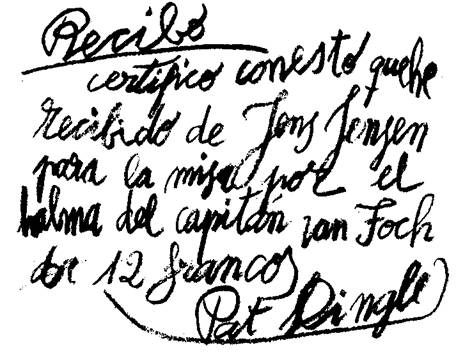 Recibo
certifico conesto quehe
recibido de Jens Jensen
para la misa por el
halma del capitán van Foch
der 12 francos
Pat Dingle